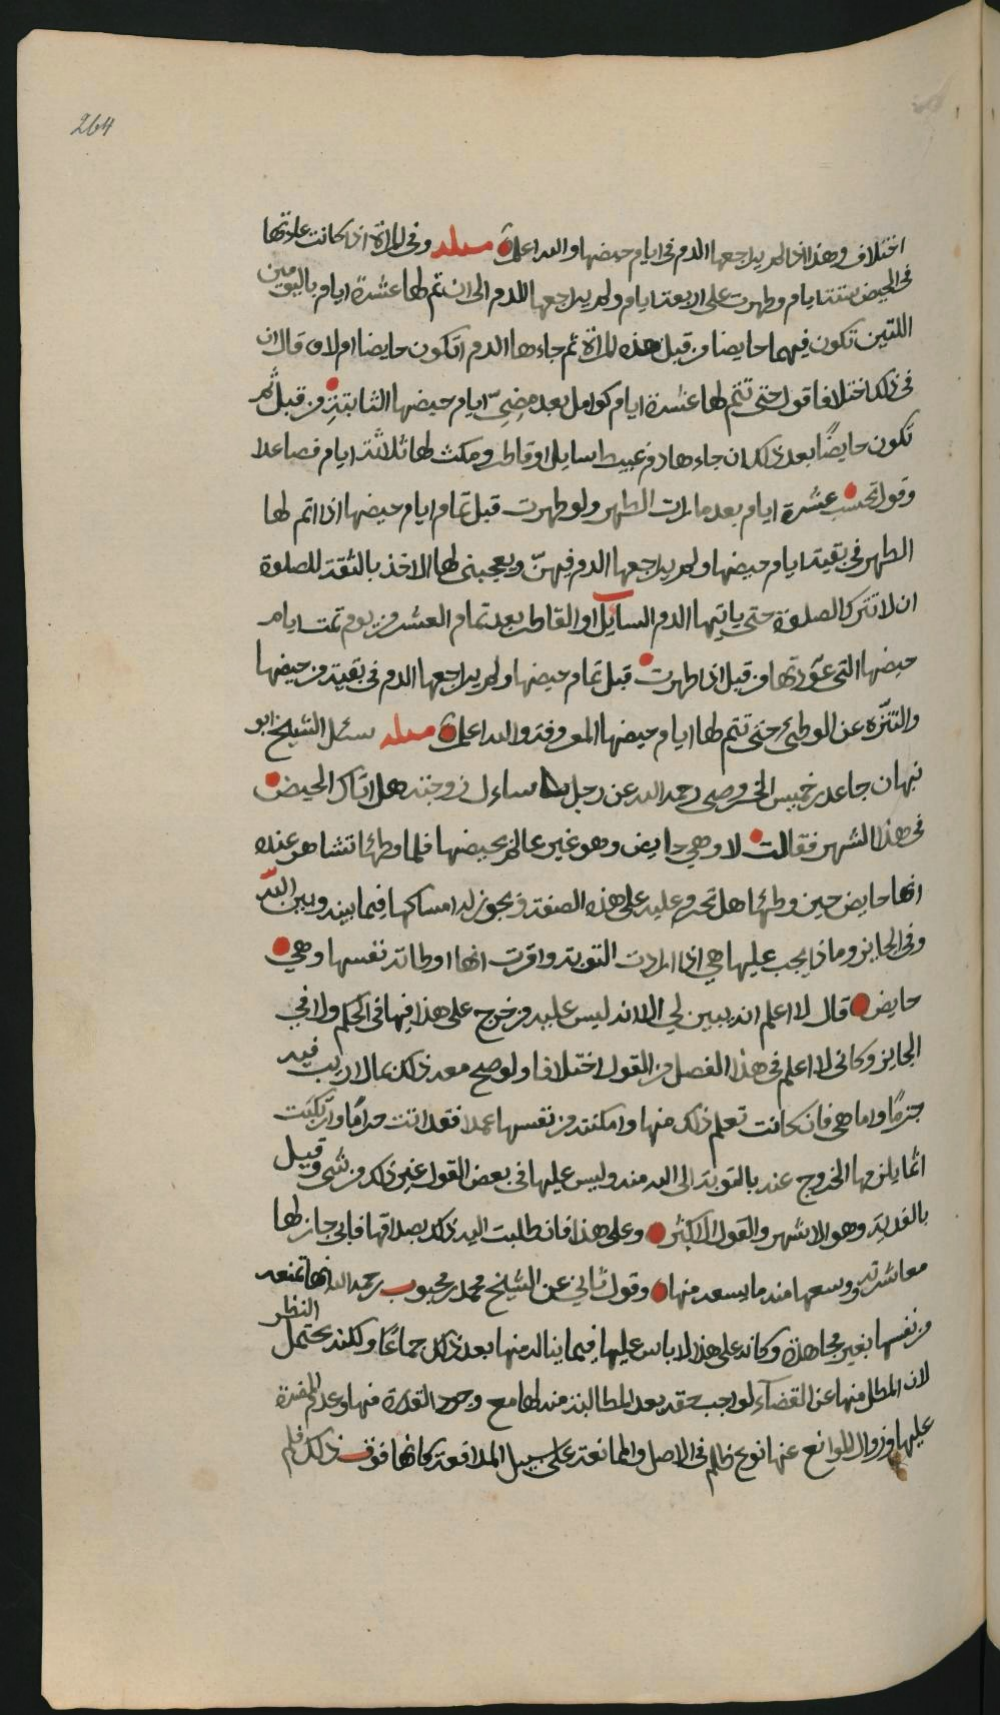 264
اختلاف وهذا اذا لم يراجعها الدم في ايام حيضها والله اعلم مسئلة وفي المراة اذا كانت عادتها
في الحيض ستة ايام وطهرت على اربعة ايام ولم يراجعها الدم الى ان تم لها عشرة ايام باليومين
اللتين تكون فيهما حايضا من قبل هذه المراة ثم جاءها الدم اتكون حايضا ام لا قال ان
في ذلك اختلافا قول حتى تتم لها عشرة ايام كوامل بعد مضيّ ايام حيضها الثابتة من قبل ثم
تكون حايضًا بعد ذلك ان جاءها دم عبيط سايل او قاطر ومكث لها ثلاثة ايام فصاعدا
وقول تحسب عشرة ايام بعد ما رات الطهر ولو طهرت قبل تمام ايام حيضها اذا تم لها
الطهر في بقية ايام حيضها ولم يراجعها الدم فيهنّ ويعجبني لها الاخذ بالثقة للصلوة
ان لا تترك الصلوة حتى ياتيها الدم السايل او القاطر بعد تمام العشر من يوم تمت ايام
حيضها التي عوّدتها من قبل اذا طهرت قبل تمام حيضها ولم يراجعها الدم في بقية من حيضها
والتنزّه عن الوطئ حتى تتم لها ايام حيضها المعروفة والله اعلم مسئلة سئل الشيخ ابو
نبهان جاعد بن خميس الخروصي رحمه الله عن رجل ساءل زوجته هل اتاك الحيض
في هذا الشهر فقالت لا وهي حايض وهو غير عالم بحيضها فلما وطئها تشاهر عنده
انها حايض حين وطئها هل تحرم عليه على هذه الصفة ويجوز له امساكها فيما بينه وبين اللّه
وفي الجايز وماذا يجب عليها هي اذا ارادت التوبة واقرت انها اوطاته نفسها وهي
حايض قال لا اعلم انه يبين لي الا انه ليس عليه من خرج على هذا فيها في الحكم ولا في
الجايز وكاني لا اعلم في هذا الفصل من القول اختلافا ولو صح معه ذلك بما لا ريب فيه
جزمًا واما هي فان كانت تعلم ذلك منها وامكنته من نفسها عمدا فقد اتت حرامًا وارتكبت
اثما يلزمها الخروج عنه بالتوبة الى الله منه وليس عليها في بعض القول غير ذلك من شي وقيل
بالفدية وهو الاشهر والقول الاكثر وعلى هذا فان طلبت اليه ذلك بصداقها فابى جاز لها
معاشرته ووسعها منه ما يسعه منها وقول ثاني عن الشيخ محمد بن محبوب رحمه الله انها تمنعه
من نفسها بغير مجاهدة وكانه على هذا لا باس عليها فيما يناله منها بعد ذلك جماعًا ولكنه يحتمل النظر
لان المطل منها عن القضآء لواجب حقه بعد المطالبة منه لها مع وجود القدرة منها وعدم المضرة
عليها وزوال الموانع عنها نوع ظلم في الاصل والممانعة على سبيل المدافعة كانها فوق ذلك فلم